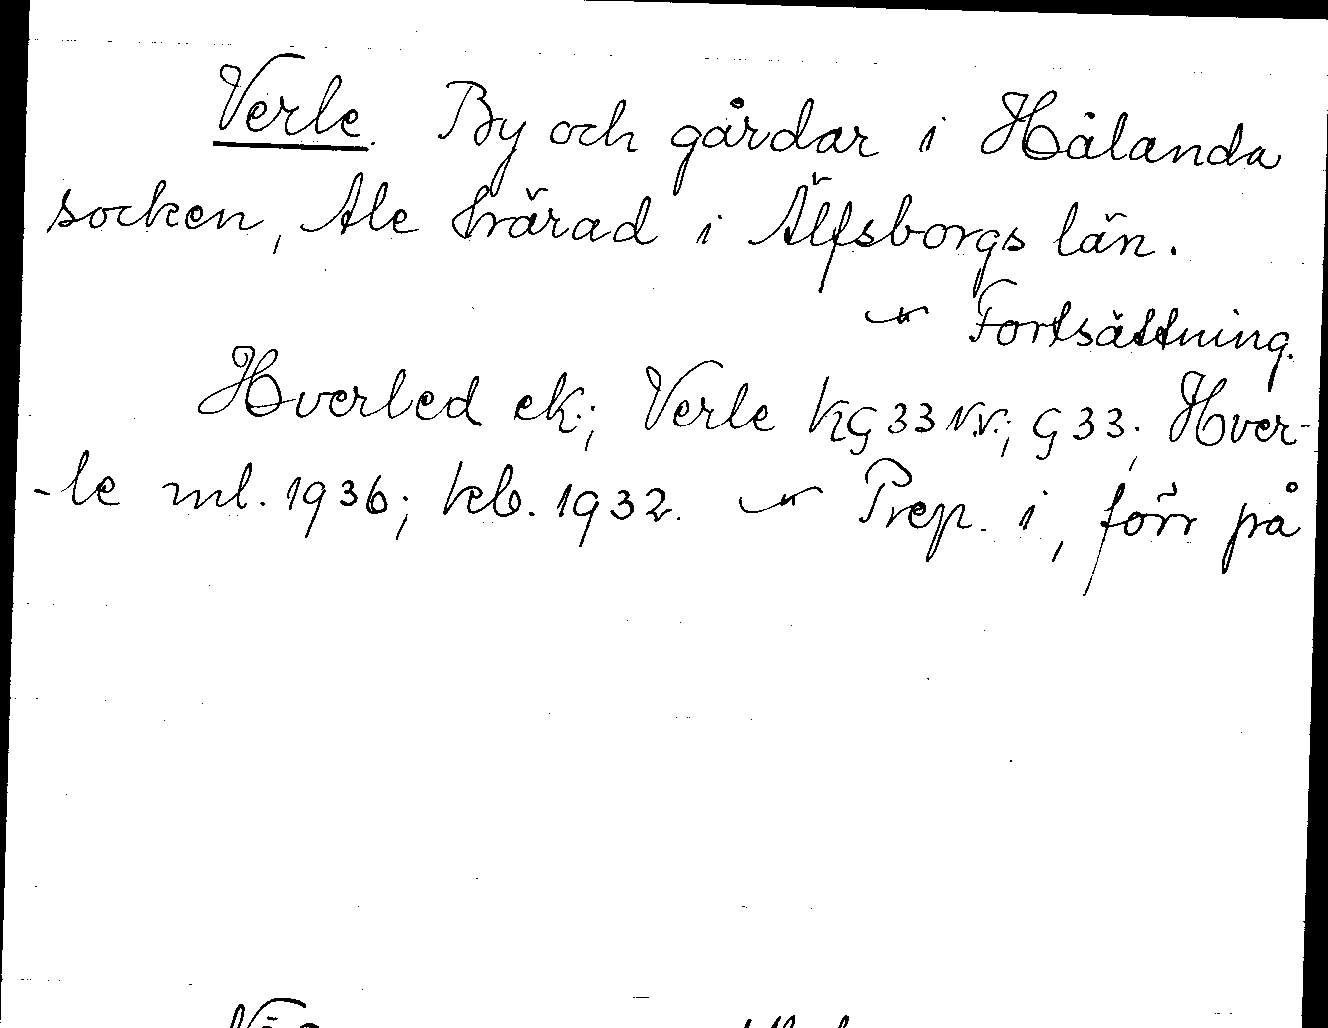 Verle. By och gårdar i Hålanda
socken, Ale härad i Älfsborgs län.
~ Fortsättning.
Hverled ek.; Verle KG 33 N.V.; G 33; Hver-
-le ml. 1936; kb. 1932. ~ Prep. i, förr på